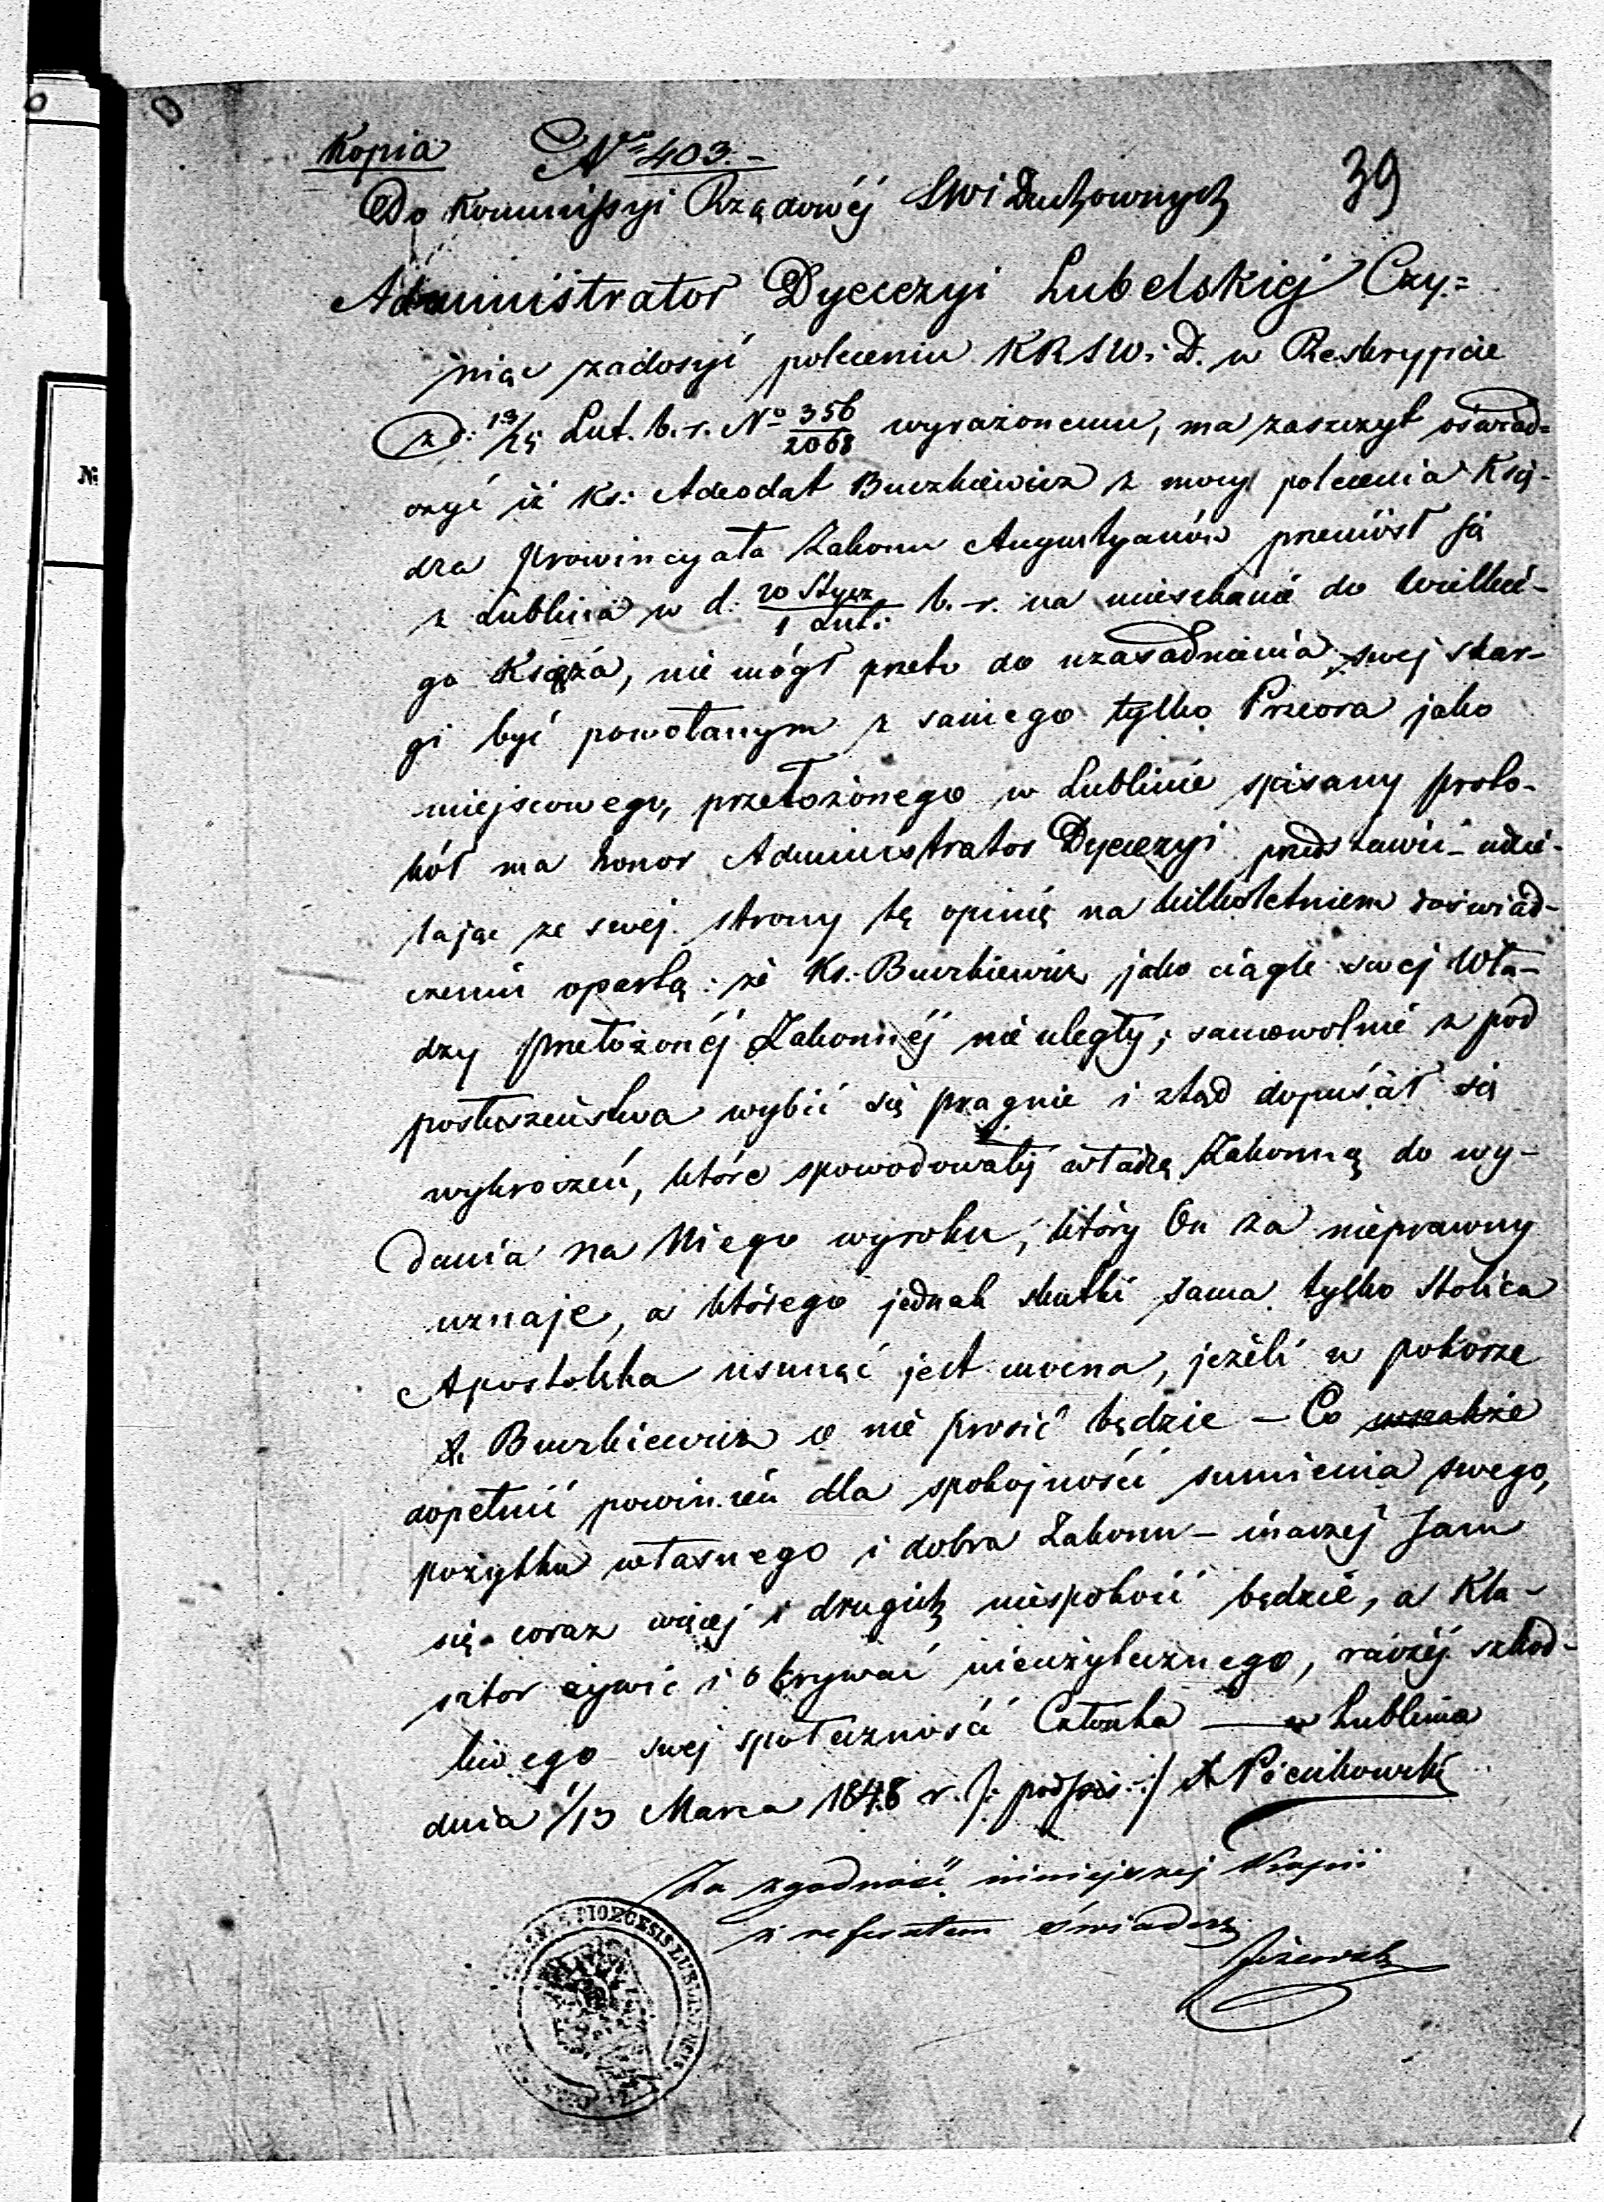 Kopia No 403.-
39
Do Kommissyi Rządowéj SWi Duchownych
Administrator Dyecezyi Lubelskiéj Czy=
niąc zadosyć poleceniu KRSWiD. w Reskrypcie
z d: 13/25 Lut. b. r. No 356/2068 wyrażonemu, ma zaszczyt oświad=
czyć iż Ks: Adeodat Buczkiewicz z mocy polecenia Xię-
dza Prowincyała Zakonu Augustyanów przeniósł się
z Lublina w d: 20 Stycz/1 Lut: b. r. na mieszkanie do Wielkie-
go Książa, nie mógł przeto do uzasadnienia swej skar-
gi być powołanym z samego tylko Przeora jako
miejscowego, przełożonego w Lublinie spisany proto-
kół ma honor Administrator Dyecezyi przedstawić - udzie-
lając ze swej strony tę opinię na kilkoletniem doświad-
czeniu opartą: że Ks: Buczkiewicz jako ciągle swej Wła-
dzy przełożonéj Zakonnéj nie uległy; samowolnie z pod
posłuszeństwa wybić się pragnie i ztąd dopuścił się
wykroczeń, które spowodowały władzę Zakonną do wy-
dania na Niego wyroku, który On za nieprawny
uznaje, a którego jednak skutki sama tylko Stolica
Apostolska usunąć jest mocna, jeżeli w pokorze
X. Buczkiewicz o nie prosić będzie - Co wszakże
dopełnić powinien dla spokojności sumienia swego,
pożytku własnego i dobra Zakonu - inaczej sam
się coraz więcej i drugich niespokoić będzie, a Kla-
sztor żywić i okrywać nieużytecznego, raczéj szkod-
liwego swej społeczności Członka — w Lublinie
dnia 1/13 Marca 1848 r. /: podpis :/ X Pieńkowski
Za zgodność niniejszej Kopii
z referatem świadczę